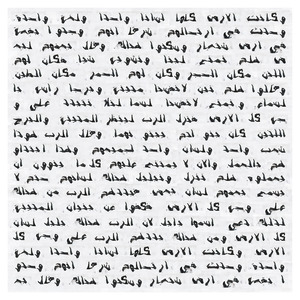 وكانت الارض كلها لسانا واحدا ولغة واحدة
وحدث في ارتحالهم شرقا انهم وجدوا بقعة
في ارض شنعار وسكنوا هناك وقال بعضهم لبعض
هلم نصنع لبنا ونشويه شيا فكان لهم
اللبن مكان الحجر وكان لهم الحمر مكان الطين
وقالوا هلم نبن لانفسنا مدينة وبرجا راسه
بالسماء ونصنع لانفسنا اسما لئلا نتبدد على وجه
كل الارض فنزل الرب لينظر المدينة والبرج
اللذين كان بنو ادم يبنونهما وقال الرب هوذا
شعب واحد ولسان واحد لجميعهم وهذا ابتداؤهم
بالعمل والان لا يمتنع عليهم كل ما ينوون ان
يعملوه هلم ننزل ونبلبل هناك لسانهم حتى لا
يسمع بعضهم لسان بعض فبددهم الرب من هناك
على وجه كل الارض فكفوا عن بنيان المدينة
لذلك دعي اسمها بابل لان الرب هناك بلبل لسان
كل الارض ومن هناك بددهم الرب على وجه كل
الارض وكانت الارض كلها لسانا واحدا ولغة
واحدة وحدث في ارتحالهم شرقا انهم وجدوا
بقعة في ارض شنعار وسكنوا هناك وقال